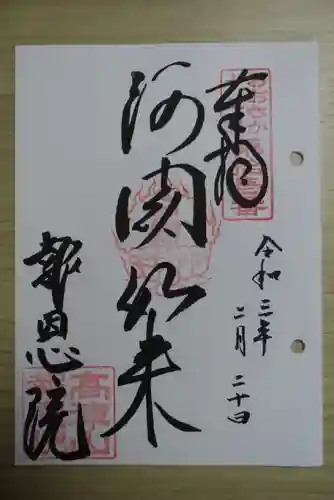 奉拝
阿閦如来
令和三年
二月二十日
報恩院
高野山